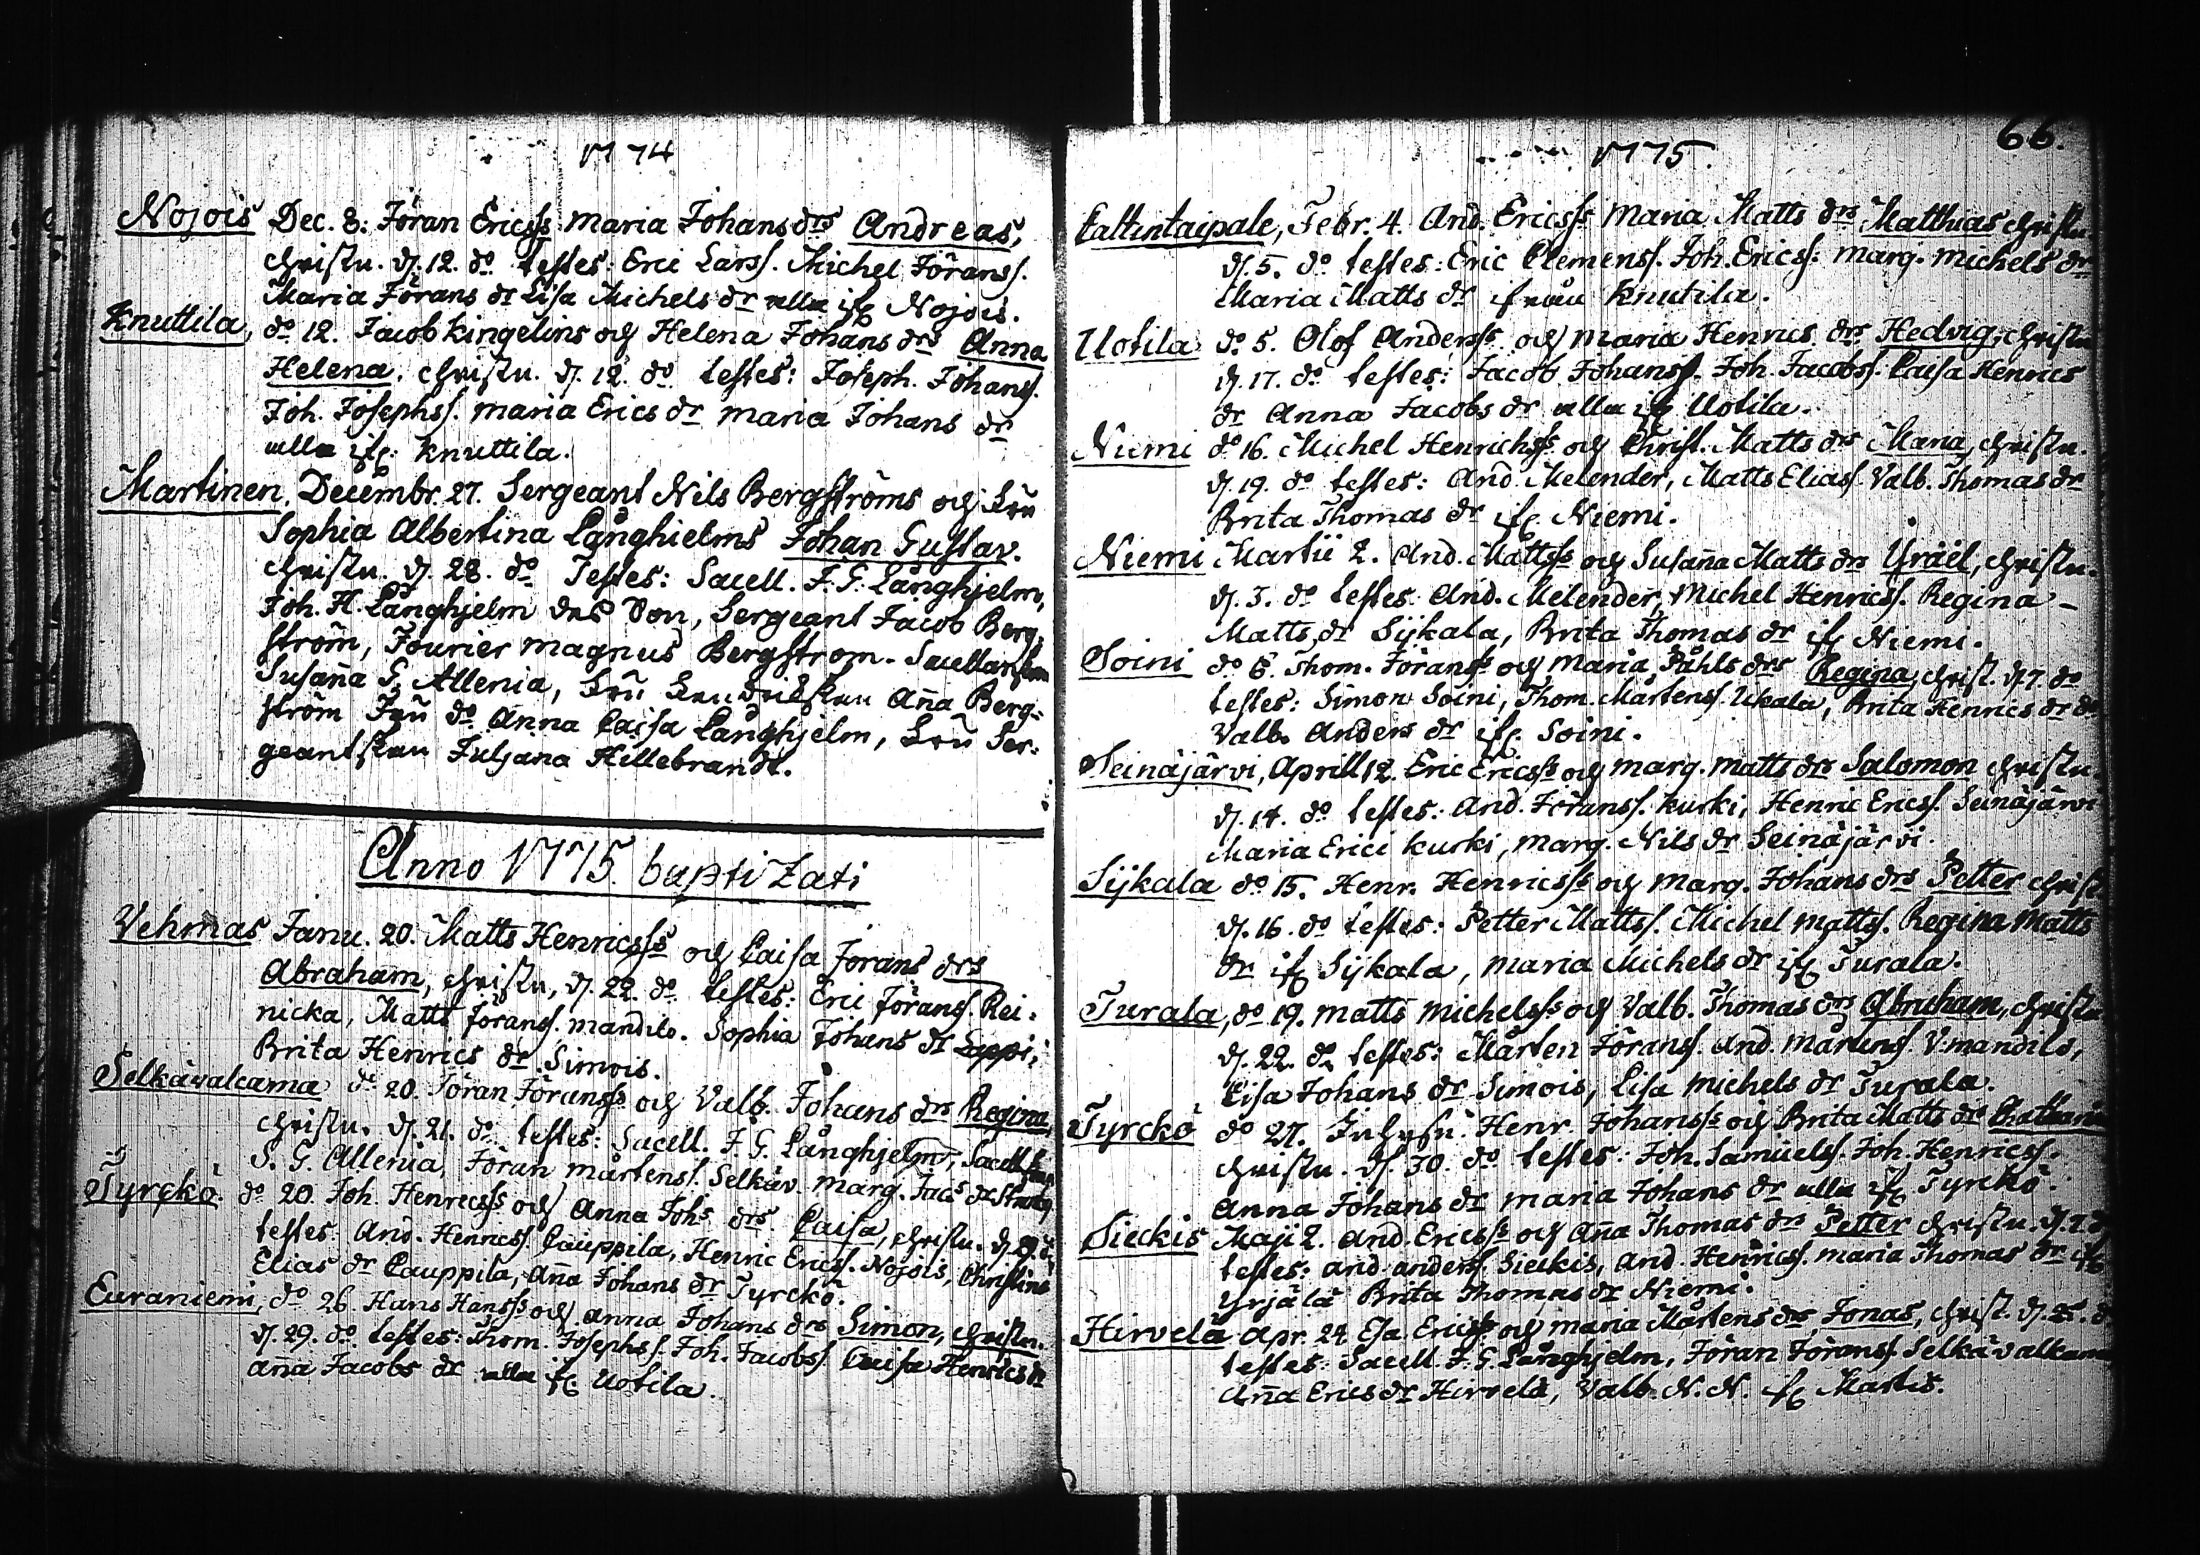 1774
Nojois Dec. 8. Jöran Ericsss Maria Johans drs Andreas,
christn. d. 12. do testes: Eric Larss. Michel Jöranss.
Maria Jörans dr Lisa Michels dr alla if. Nojois.
Knuttila, do 12. Jacob Kingelins och Helena Johans drs Anna
Helena. christn. d. 12. do testes: Joseph. Johanss.
Joh. Josephss. Maria Erics dr Maria Johans dr
alla if. Knuttila.
Martinen, Decembr. 27. Sergeant Nils Bergströms och
Sophia Albertina Långhielms Johan Gustav.
christn. d. 28. do Testes: Sacell. F. G. Långhjelm,
Joh. H. Långhjelm des Son, Sergeant Jacob Berg-
ström, Fourier Magnus Bergström. Sacellanskan
Susan̄a G. Allenia, An̄a Berg-
ström do Anna Caisa Långhjelm, Ser-
geantskan Juljana Hillebrandt.
Anno 1775. baptizati
Vehmas Janu. 20. Matts Henricsss och Caisa Jörans drs
Abraham, christn, d. 22. do testes: Eric Jöranss. Rei-
nicka, Matts Jöranss. Mandilo. Sophia Johans dr Lappi,
Brita Henrics dr Simois.
Selkäwalcama do 20. Jöran Jöransss och Valb. Johans drs Regina
christn. d. 21. do testes: Sacell. F. G. Långhjelm,
S. G. Allenia, Jöran Mårtenss. Selkäv. Marg. Jacs dr
Tyrckö. do 20. Joh. Henricsss och Anna Johs drs Caisa, christn. d. 29. do
testes. And. Henricss. Cauppila, Henric Ericss. Nojois, Christina
Elias dr Cauppila, An̄a Johans dr Tyrckö.
Euraniemi, do 26. Hans Hansss och Anna Johans drs Simon, christn.
d. 29. do testes: Thom. Josephss. Joh. Jacobss. Caisa Henrics dr
An̄a Jacobs dr alla if. Uotila.
66.
1775.
Caltintaipale, Febr. 4. And. Ericsss Maria Matts drs Matthias christn.
d. 5. do testes: Eric Clemenss. Joh. Ericss. Marg. Michels dr
Maria Matts dr ifrån Knutila.
Uotila do 5. Olof Andersss och Maria Henrics drs Hedvig, christn
d. 17. do testes: Jacob Johanss. Joh. Jacobss. Caisa Henrics
dr Anna Jacobs dr alla if Uotila.
Niemi do 16. Michel Henrichsss och Christ. Matts drs Maria, christn.
d. 19. do testes: And. Melender, Matts Eliass. Valb. Thomas dr
Brita Thomas dr if. Niemi.
Niemi Martii 2. And. Mattsss och Susan̄a Matts drs Israël, christn.
d. 3. do testes. And. Melender, Michel Henricss. Regina
Matts dr Sijkala, Brita Thomas dr if Niemi.
Soini do 6. Thom. Jöransss och Maria Påhls drs Regina, christ. d. 7. do
testes: Simon Soini, Thom. Mårtenss. Ukala, Brita Henrics dr do
Valb. Anders dr if. Soini.
Seinäjärvi, Aprill 12. Eric Ericsss och Marg. Matts drs Salomon christn.
d. 14. do testes: And. Jöranss. Kurki, Henric Ericss. Seinäjärvi
Maria Erici Kurki, Marg. Nils dr Seinäjärvi.
Sijkala do 15. Henr. Henricsss och Marg. Johans drs Petter christ
d. 16. do testes: Petter Mattss. Michel Mattss. Regina Matts
dr if Sijkala, Maria Michels dr if Turala.
Turala, do 19. Matts Michelsss och Valb. Thomas drs Abraham, christn
d. 22. do testes: Mårten Jöranss. And. Mårtenss. V. mandilo,
Lisa Johans dr Simois, Lisa Michels dr Turala.
Tyrckö do 27. Henr. Johansss och Brita Matts drs
christn. d. 30. do testes: Joh. Samuelss. Joh. Henricss.
Anna Johans dr Maria Johans dr alla if Tyrckö.
Sieckis Maji 2. And. Ericsss och An̄a Thomas drs Petter christn. d. 2. do
testes: And. Anderss. Sieckis, And. Henricss. Maria Thomas dr if
Yrjälä Brita Thomas dr Niemi.
Hirvelä Apr. 24. Esa. Ericsss och Maria Mårtens drs Jonas, christ. d. 25. do
testes: Sacell. F. G. Långhjelm, Jöran Jöranss. Selkävalkama
An̄a Erics dr Hirvelä, Valb. N. N. if Martis.